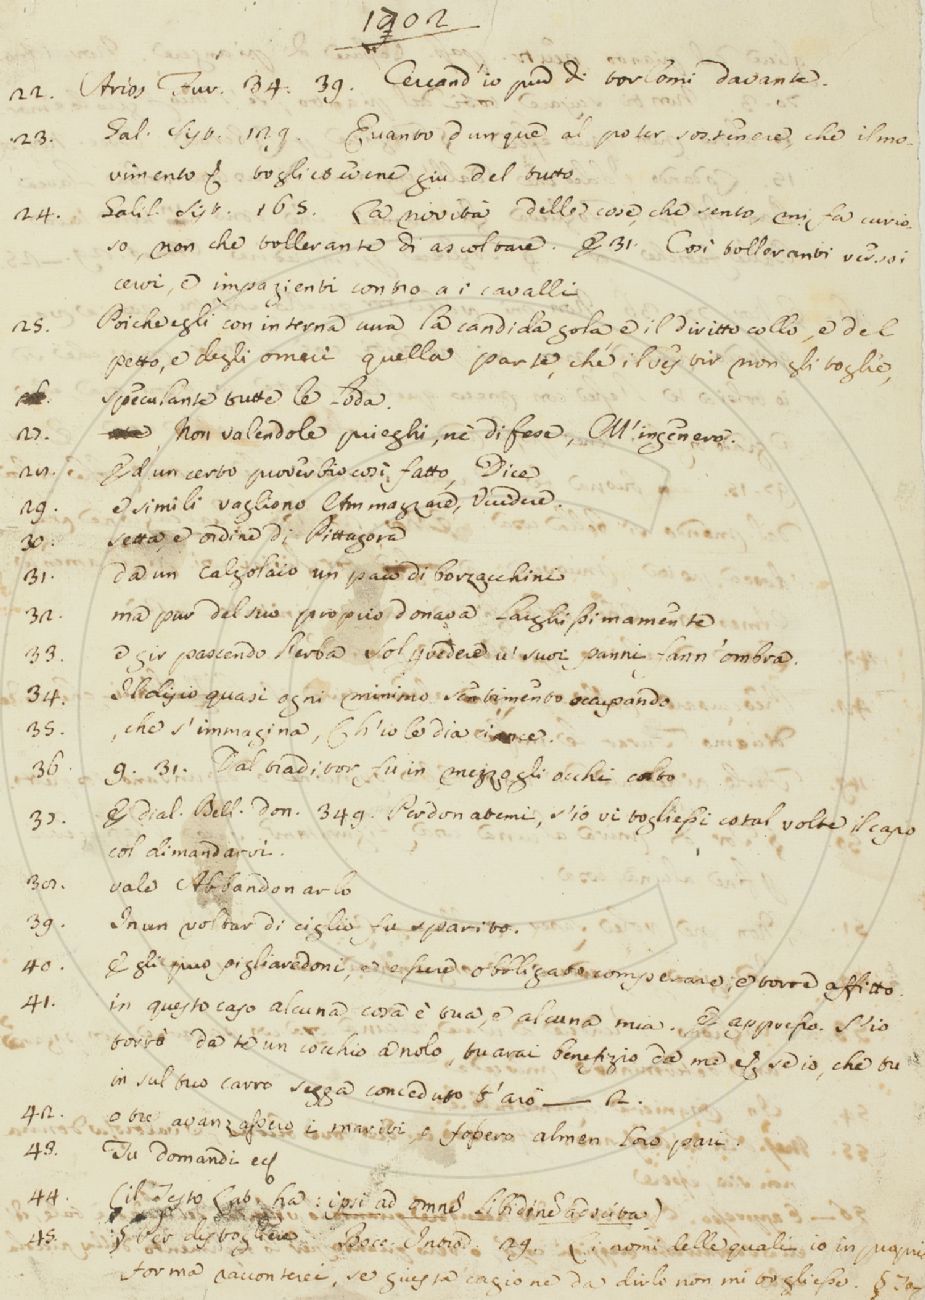 1702
22. Arios. Fur. 34. 39. Cercand' io pur di torlomi davante.
23. Gal. Sist. 129. Quanto dunque al poter sostenere che il mo-
vimento &c. toglietevene giu del tutto
24. Galil. Sist. 165. La novità delle cose, che sento, mi fa curio-
so, non che tollerante di ascoltare. E 31. Così tolleranti verso i
cervi, e impazienti contro a i cavalli
25. Poiche egli con interna cura la candida gola e il diritto collo, e del
petto, e degli omeri quella parte, che il vestir non gli toglie,
26. speculante tutte le loda.
27. Non valendole prieghi, nè difese, M'ingenerò.
28. Ed un certo proverbio così fatto, Dice
29. e simili vagliono Ammazzare, Uccidere.
30. setta, e ordine di Pittagora
31. da un Calzolaio un paio di borzacchini
32. ma pur del suo proprio donava larghissimamente
33. e gir pascendo l'erba Sol vedere u' suoi panni fann' ombra.
34. Il disio quasi ogni minimo sentimento occupando
35. , che s'immagina, Ch'io le dia ciance.
36 9. 31. Dal traditor fu in mezzo gli occhi colto
37. E dial. Bell. don. 349. Perdonatemi, s'io vi togliessi cotal volta il capo
col dimandarvi.
38. vale Abbandonarlo
39. In un voltar di ciglio fu sparito.
40. Egli può pigliare doni, e essere obbligato comperare, e torre affitto.
41. in questo caso alcuna cosa è tua, e alcuna mia. E appresso. S'io
torrò da te un cocchio a nolo, tu arai benefizio da me &c. se io, che tu
in sul tuo carro segga conceduto t'arò — 2.
42. o tre avanzassero i mariti, o fossero almen loro pari.
43. Tu domandi &c.
44. (il Testo Lat. ha: ipsi ad omnē libidinē adscita)
45. § Per distogliere. Bocc. Introd. 29. Li nomi delle quali io in propria
forma racconterei, se giusta cagione da dirlo non mi togliesse. §